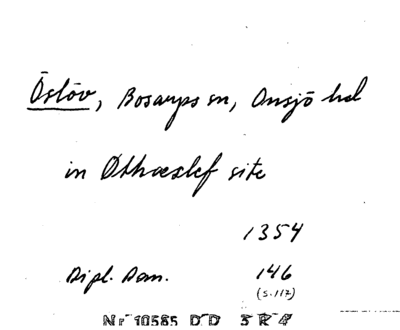 Östöv, Bosarps sn, Onsjö hd
in Øthæslef site
1354
Dipl. Dan. 146
(s.117)
Nr 10585 DD 3 R 4